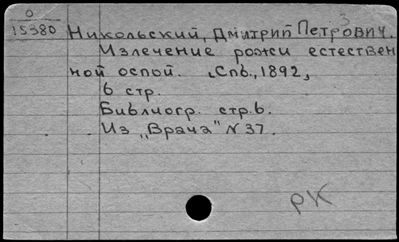 О
15380
3
Никольский, Дмитрий Петрович.
Излечение рожи естествен
ной оспой. Спб., 1892,
6 стр.
Библиогр. стр. 6.
Из „Врача" N 37.
РК